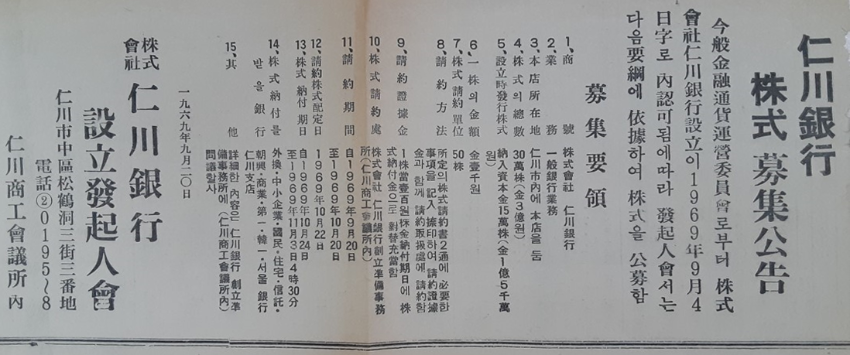 仁川銀行
株式 募集公告
今般金融通貨運營委員會로부터 株式
會社仁川銀行設立이 1969年9月4
日字로 內認可됨에따라 發起人會서는
다음要綱에 依據하여 株式을 公募함
募集要領
1、商號 株式會社 仁川銀行
2、業務 一般銀行業務
3、本店所在地 仁川市內에 本店을 둠
4、株式의總數 30萬株(金3億원)
5、設立時發行株式 納入資本金15萬株(金1億5千萬
원)
6、一株의金額 金壹千원
7、株式請約單位 50株
8、請約方法 所定의株式請約書2通에 必要한
事項을 記入 捺印하여 請約證據
金과 함께 請約取扱處에 請約함
9、請約證據金 1株當壹百원(株金納付期日에 株
式納付金으로 對替充當함
10、株式請約處 株式會社 仁川銀行創立準備事務
所(仁川商工會議所內)
11、請約期間 自1969年9月20日
至1969年10月20日
12、請約株式配定日 1969年10月22日
13、株式納付期日 自1969年10月24日
至1969年11月3日4時30分
14、株式納付金을
받을銀行 外換·中小企業·國民·住宅·信託·
朝興·商業·第一·韓一·서울 銀行
仁川支店
15、其他 詳細한 內容은 仁川銀行 創立準
備事務所에(仁川商工會議所內)
問議할사
一九六九年九月二〇日
株式
會社 仁川銀行
設立發起人會
仁川市中區松鶴洞三街三番地
電話②0195~8
仁川商工會議所內